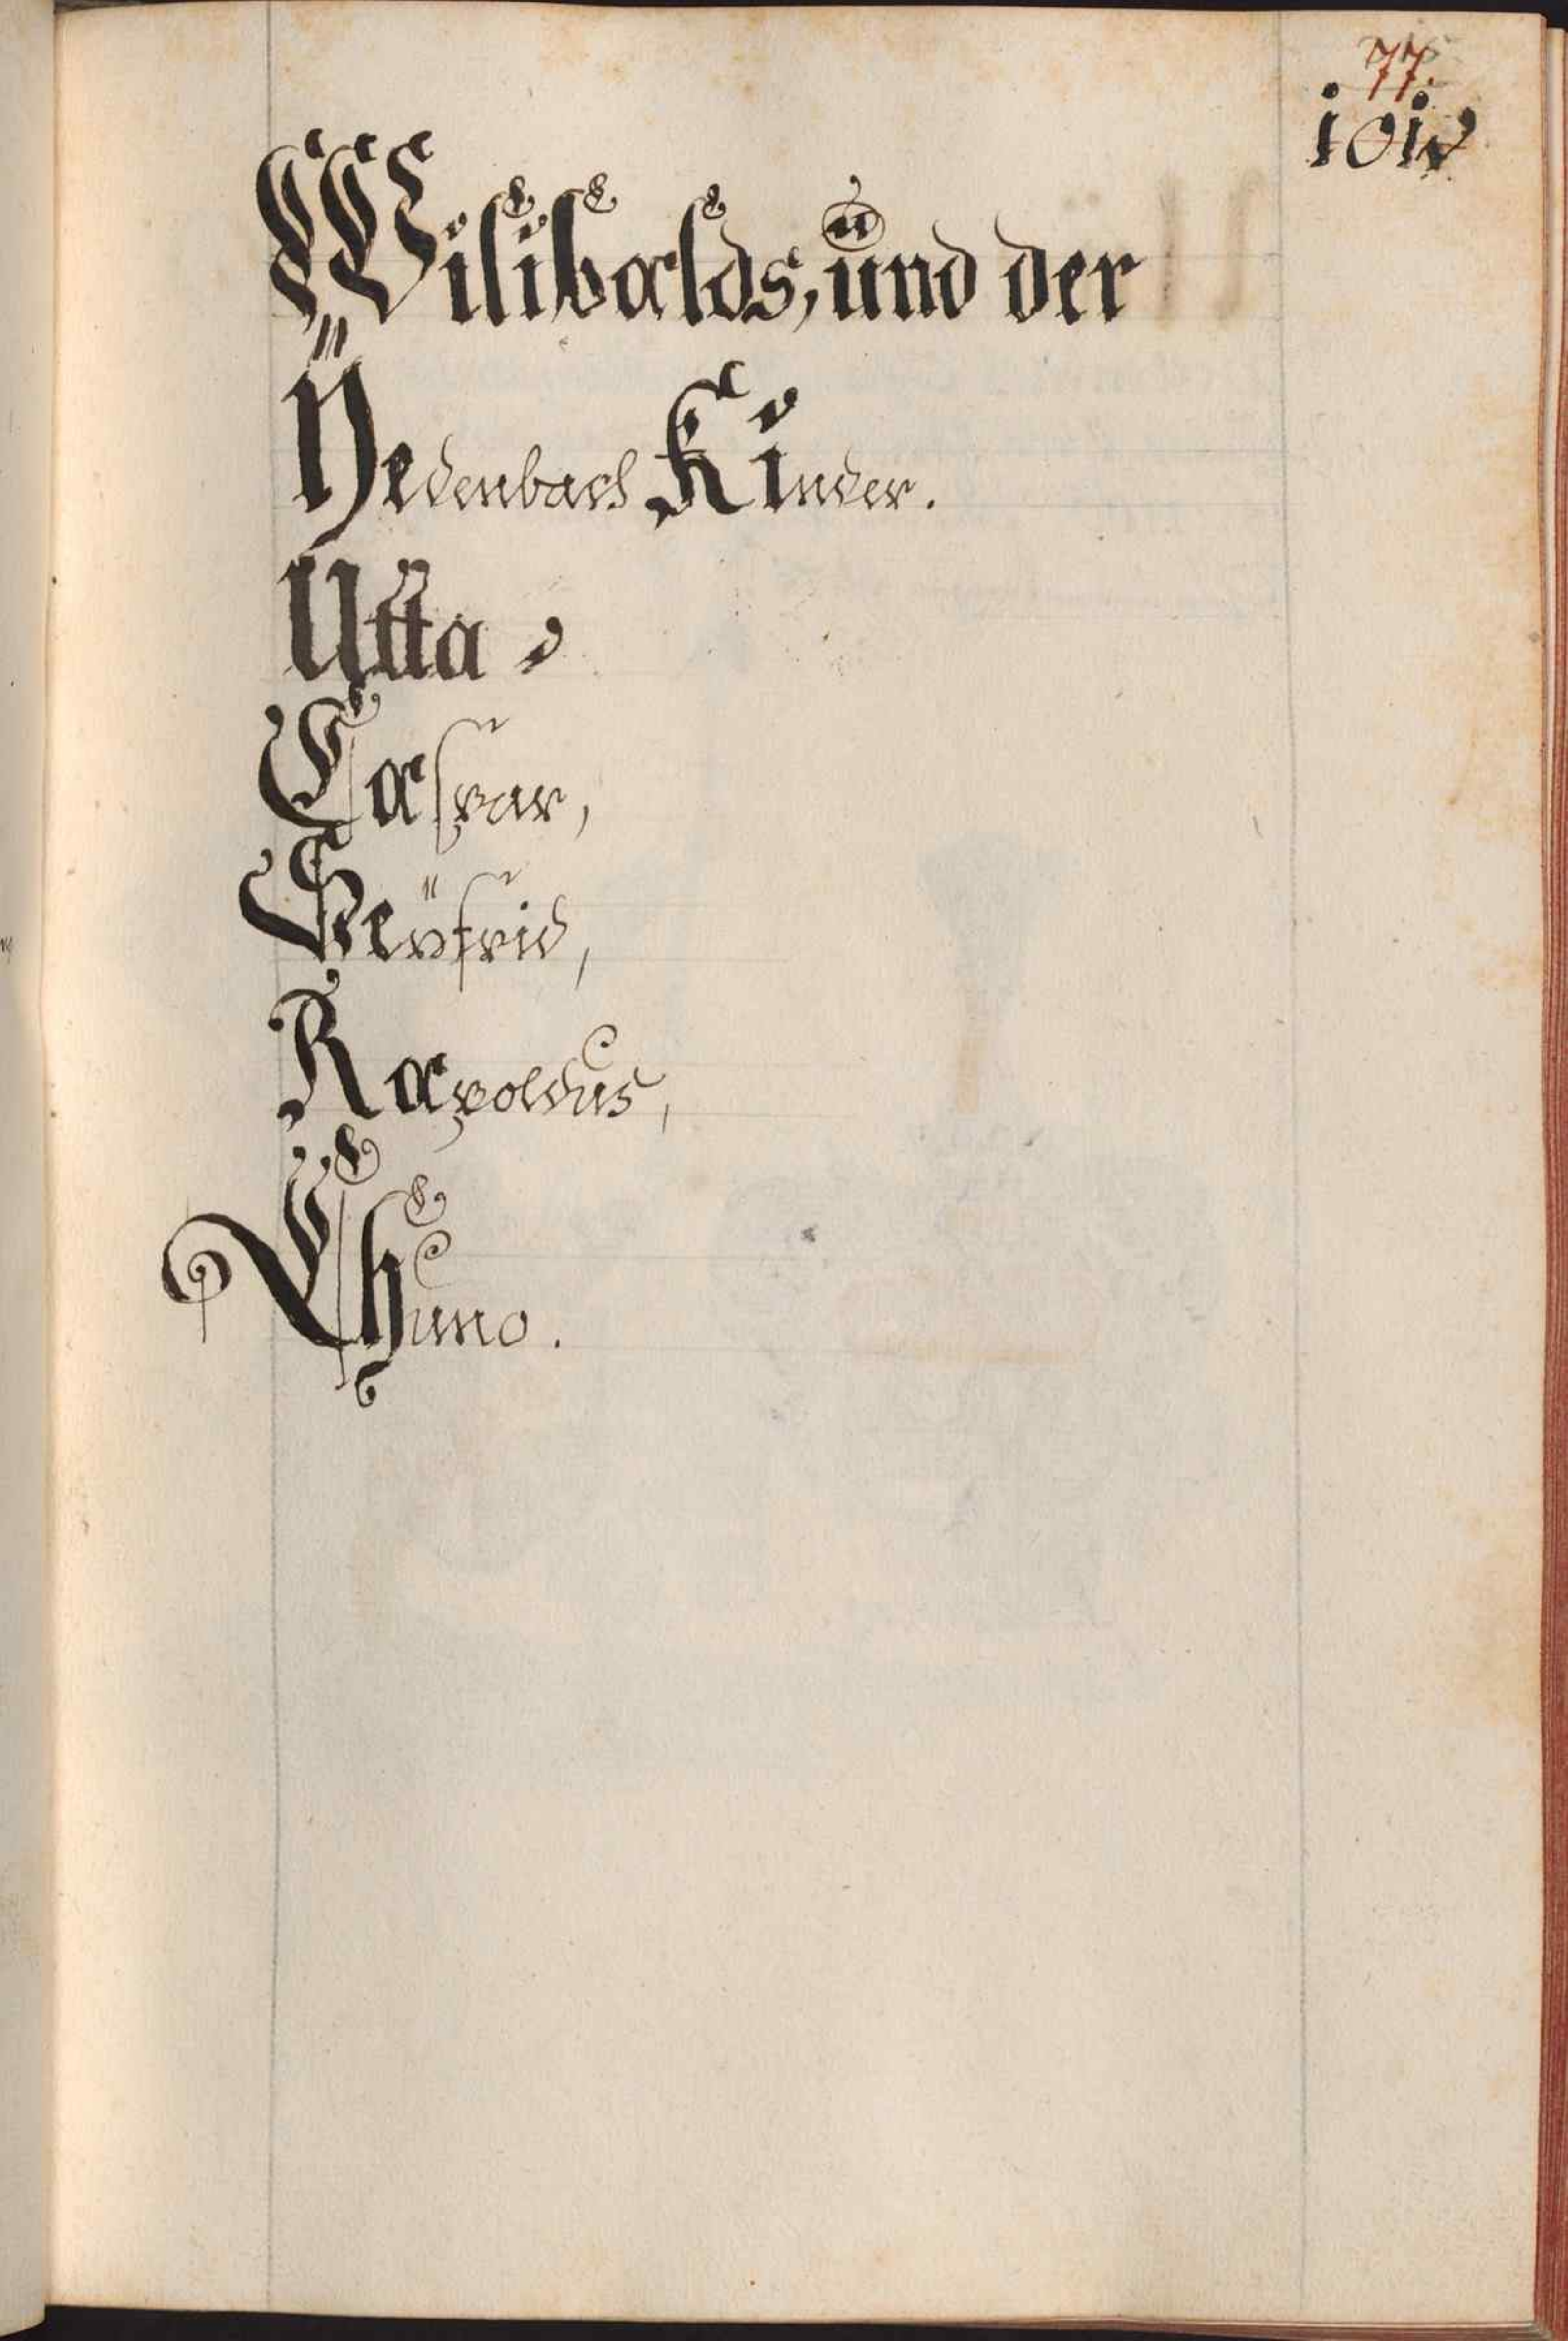 77.
101
Wilibalds, und der
Ÿedenbach Kinder.
Utta,
Caspar,
Seÿfrid,
Rapoldus,
Chuno.